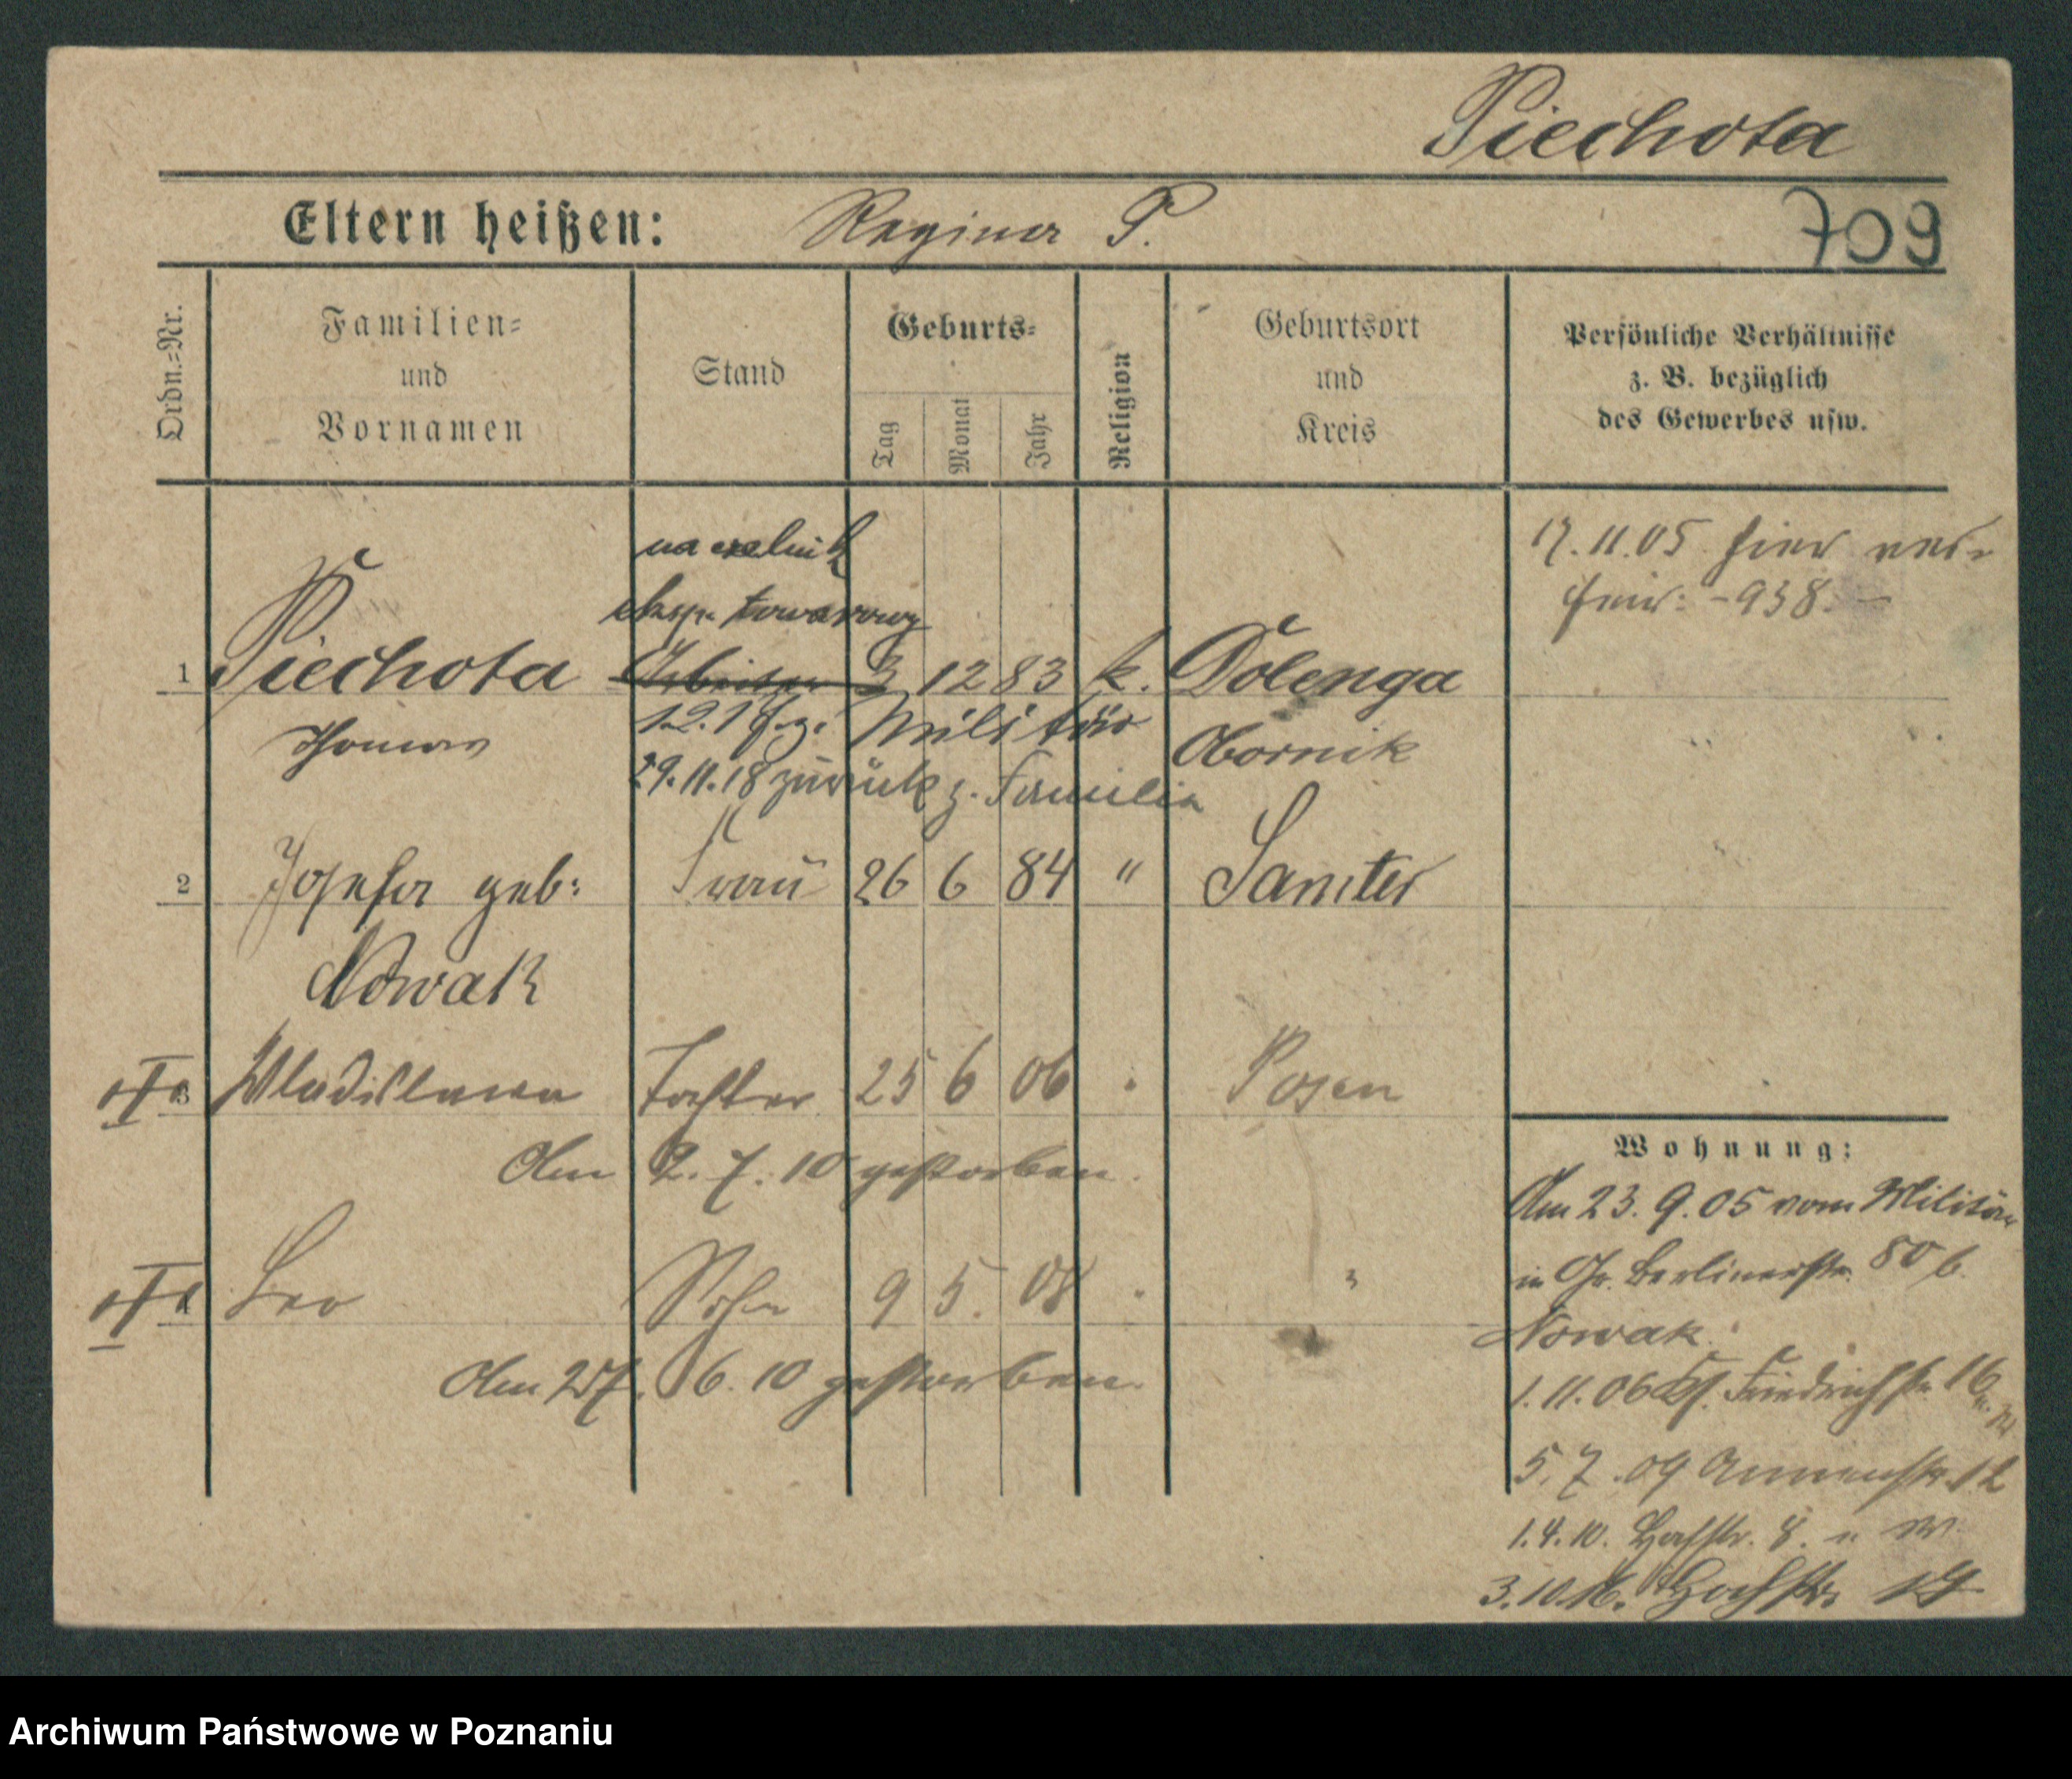 Piechota
Eltern heißen: Regina P.
709
Ordn.=Nr.
Familien=
und
Vornamen
Stand
Geburts=
Tag
Monat
Jahr
Religion
Geburtsort
und
Kreis
Persönliche Verhältnisse
z. B. bezüglich
des Gewerbes usw.
naczelnik
eksp. towarowy
17.11.05 hier ver=
heir: - 938. -
1 Piechota Arbeiter 3 12 83 k. Dolenga
Thomas Militär Obornik
29.11.18 zurück z. Familie
2 Josefa geb: Frau 26 6 84 " Samter
Nowak
3 Wladislawa Tochter 25 6 06 Posen
Am 2. 7. 10 gestorben.
4 Leo Sohn 9 5. 08 "
Am 27. 6. 10 gestorben.
Wohnung:
Am 23. 9. 05 vom Militär
in Gr. Berlinerstr. 80 b.
Nowak
1. 11. 06 Friedrichstr. 16
5. 7. 09 Annenstr. 12
1. 4. 10. 8.
3.10.16. Hochstr.
Archiwum Państwowe w Poznaniu